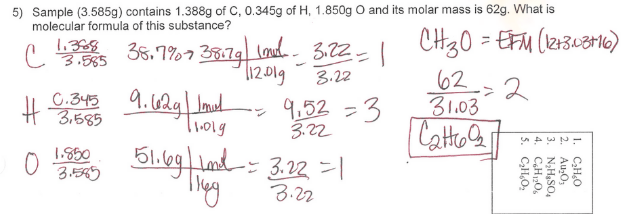 5) Sample (3.585g) contains 1.388g of C, 0.345g of H, 1.850g O and its molar mass is 62g. What is
molecular formula of this substance?
C 1.388/3.585 38.7% → 38.7g | 1mol / 12.01g = 3.22/3.22 = 1
CH3O = EFM (12+3.03+16)
62/31.03 = 2
H 0.345/3.585 9.62g | 1mol / 1.01g = 9.52/3.22 = 3
C2H6O2
O 1.850/3.585 51.6g | 1mol / 16g = 3.22/3.22 = 1
1. C2H6O
2. Au2O3
3. N2H8SO4
4. C6H12O6
5. C2H6O2